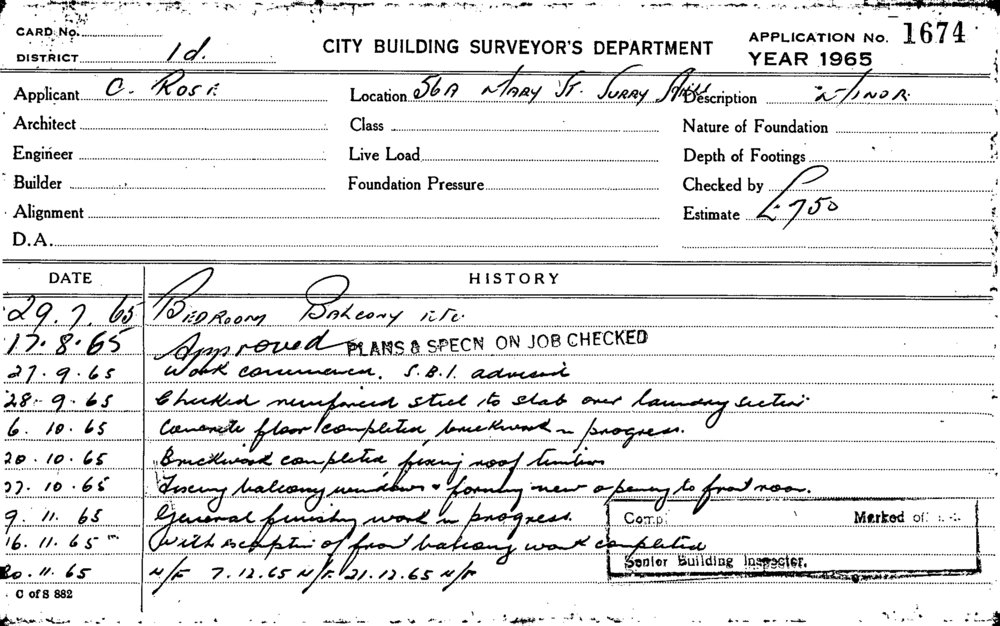 CARD No.
CITY BUILDING SURVEYOR'S DEPARTMENT
APPLICATION No. 1674
DISTRICT 1d.
YEAR 1965
Applicant C. ROSE Location 56A MARY ST. SURRY HILLS Description MINOR
Architect Class Nature of Foundation
Engineer Live Load Depth of Footings
Builder Foundation Pressure Checked by
Alignment Estimate £750
D.A.
DATE HISTORY
29.7.65 BEDROOM BALCONY ETC.
17.8.65 Approved PLANS & SPECN ON JOB CHECKED
27.9.65 Work commenced. S.B.I. advised
28.9.65 Checked reinforced steel to slab over laundry section
6.10.65 Concrete floor completed, brickwork in progress.
20.10.65 Brickwork completed fixing roof timbers
27.10.65 Fixing balcony windows & forming new opening to front room.
9.11.65 General finishing work in progress.
Comp. Marked of
16.11.65 With exception of front balcony work completed
Senior Building Inspector.
30.11.65 N/F 7.12.65 N/F 21.12.65 N/F
C of S 882